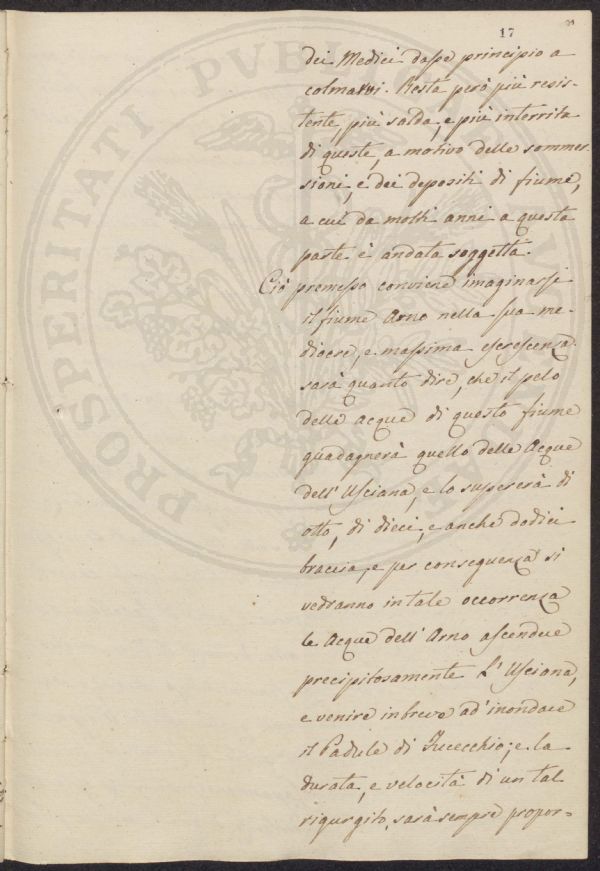 17
dei Medici dasse principio a
colmarsi. Resta però più resis-
tente più salda, e più interrita
di queste, a motivo delle sommer-
sioni, e dei depositi di fiume,
a cui da molti anni a questa
parte è andata soggetta.
Ciò premesso conviene imaginarsi
il fiume Arno nella sua me-
diocre, e massima escrescenza.
sarà quanto dire, che il pelo
delle acque di questo fiume
guadagnerà quello delle Acque
dell'Usciana, e lo supererà di
otto, di dieci, e anche dodici
braccia, e per conseguenza si
vedranno in tale occorrenza
le Acque dell'Arno ascendere
precipitosamente L'Usciana,
e venire in breve ad'inondare
il Padule di Fucecchio; e la
durata, e velocità di un tal
rigurgito, sarà sempre propor=
PROSPERITATI PVBLICAE